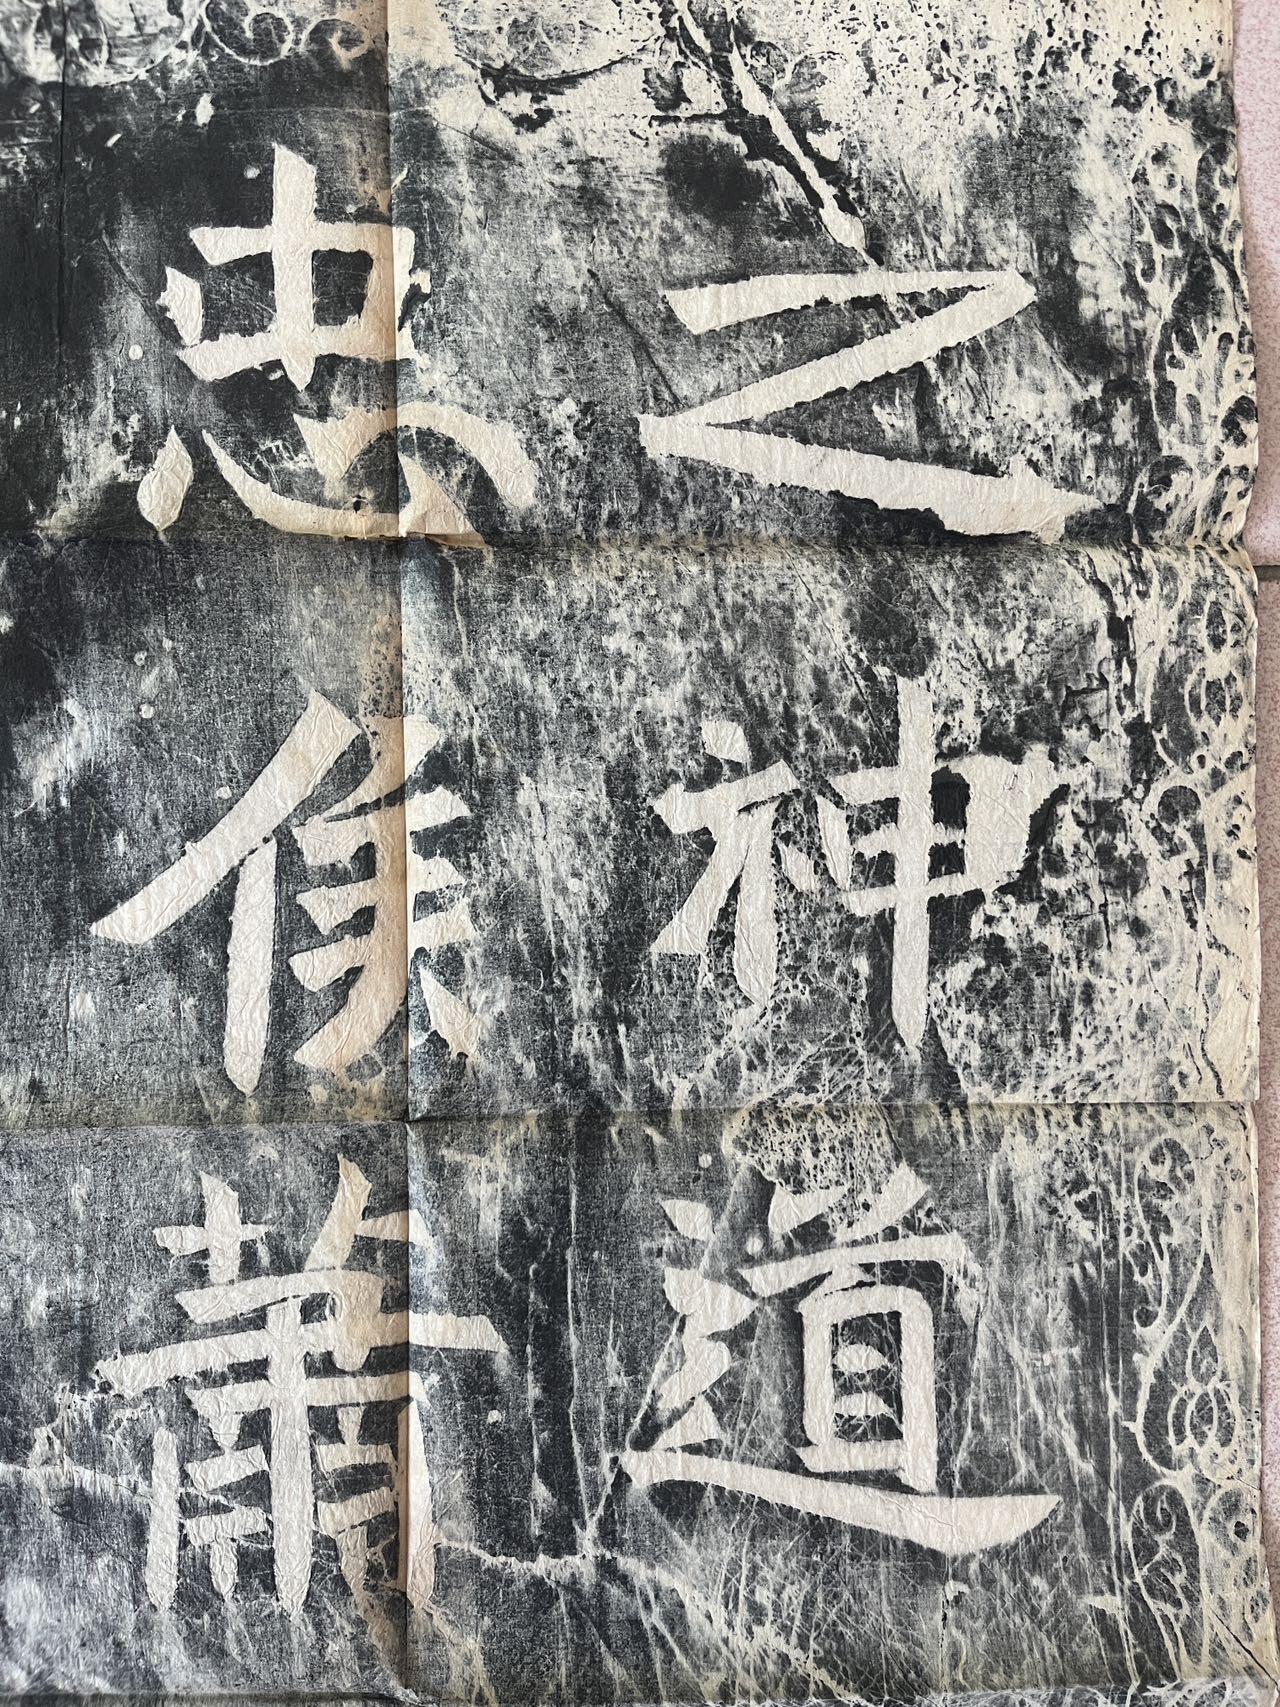 忠侯蕭
之神道